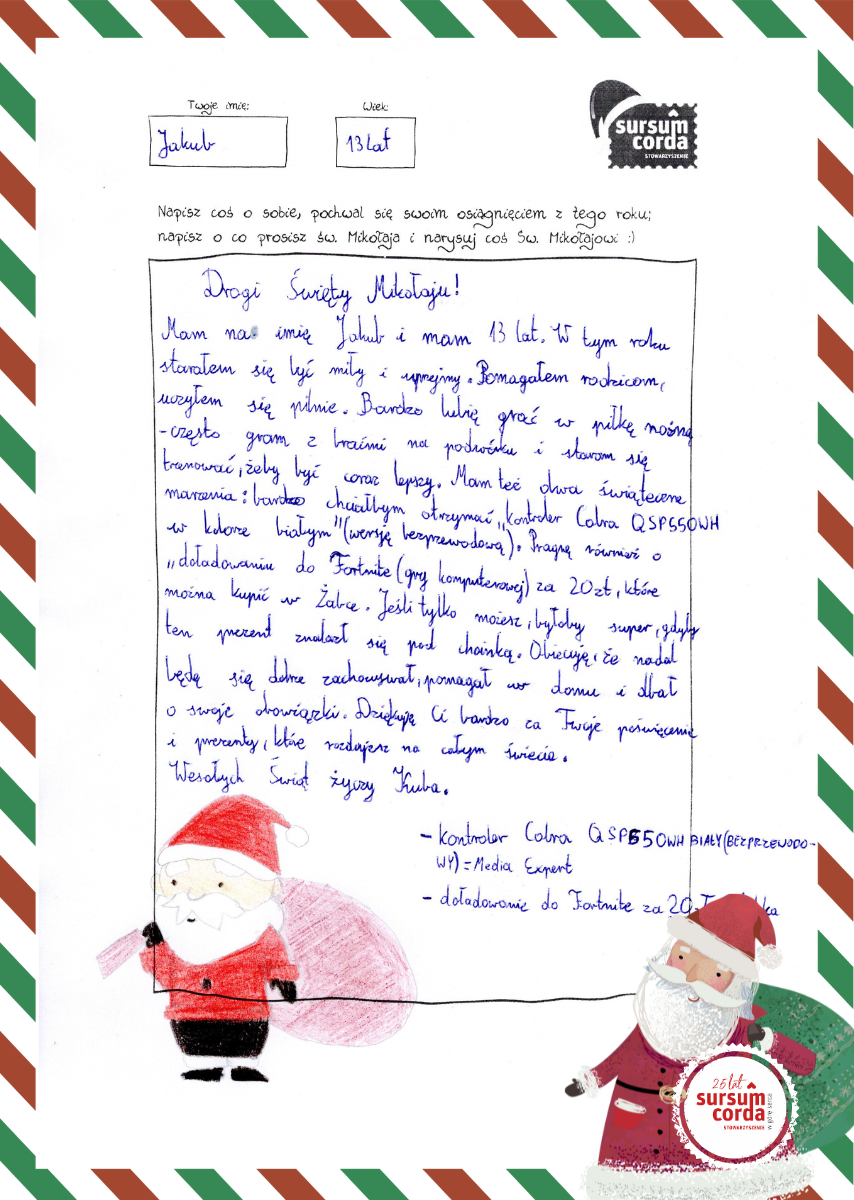 Twoje imię:
Wiek:
Jakub
13 lat
sursum
corda
STOWARZYSZENIE
Napisz coś o sobie, pochwal się swoim osiągnięciem z tego roku;
napisz o co prosisz św. Mikołaja i narysuj coś Św. Mikołajowi :)
Drogi Święty Mikołaju!
Mam na imię Jakub i mam 13 lat. W tym roku
starałem się być miły i uprzejmy. Pomagałem rodzicom,
uczyłem się pilnie. Bardzo lubię grać w piłkę nożną
-często gram z braćmi na podwórku i staram się
trenować, żeby być coraz lepszy. Mam też dwa świąteczne
marzenia: bardzo chciałbym otrzymać „kontroler Cobra QSP550WH
w kolorze białym" (wersję bezprzewodową). Pragnę również o
„doładowaniu do Fortnite (gry komputerowej) za 20zł, które
można kupić w Żabce. Jeśli tylko możesz, byłoby super, gdyby
ten prezent znalazł się pod choinką. Obiecuję, że nadal
będę się dobrze zachowywał, pomagał w domu i dbał
o swoje obowiązki. Dziękuję Ci bardzo za Twoje poświęcenie
i prezenty, które rozdajesz na całym świecie.
Wesołych Świąt życzy Kuba.
- kontroler Cobra QSP550WH BIAŁY (BEZPRZEWODO-
WY) = Media Expert
- doładowanie do Fortnite za 20
25 lat
sursum
corda
STOWARZYSZENIE